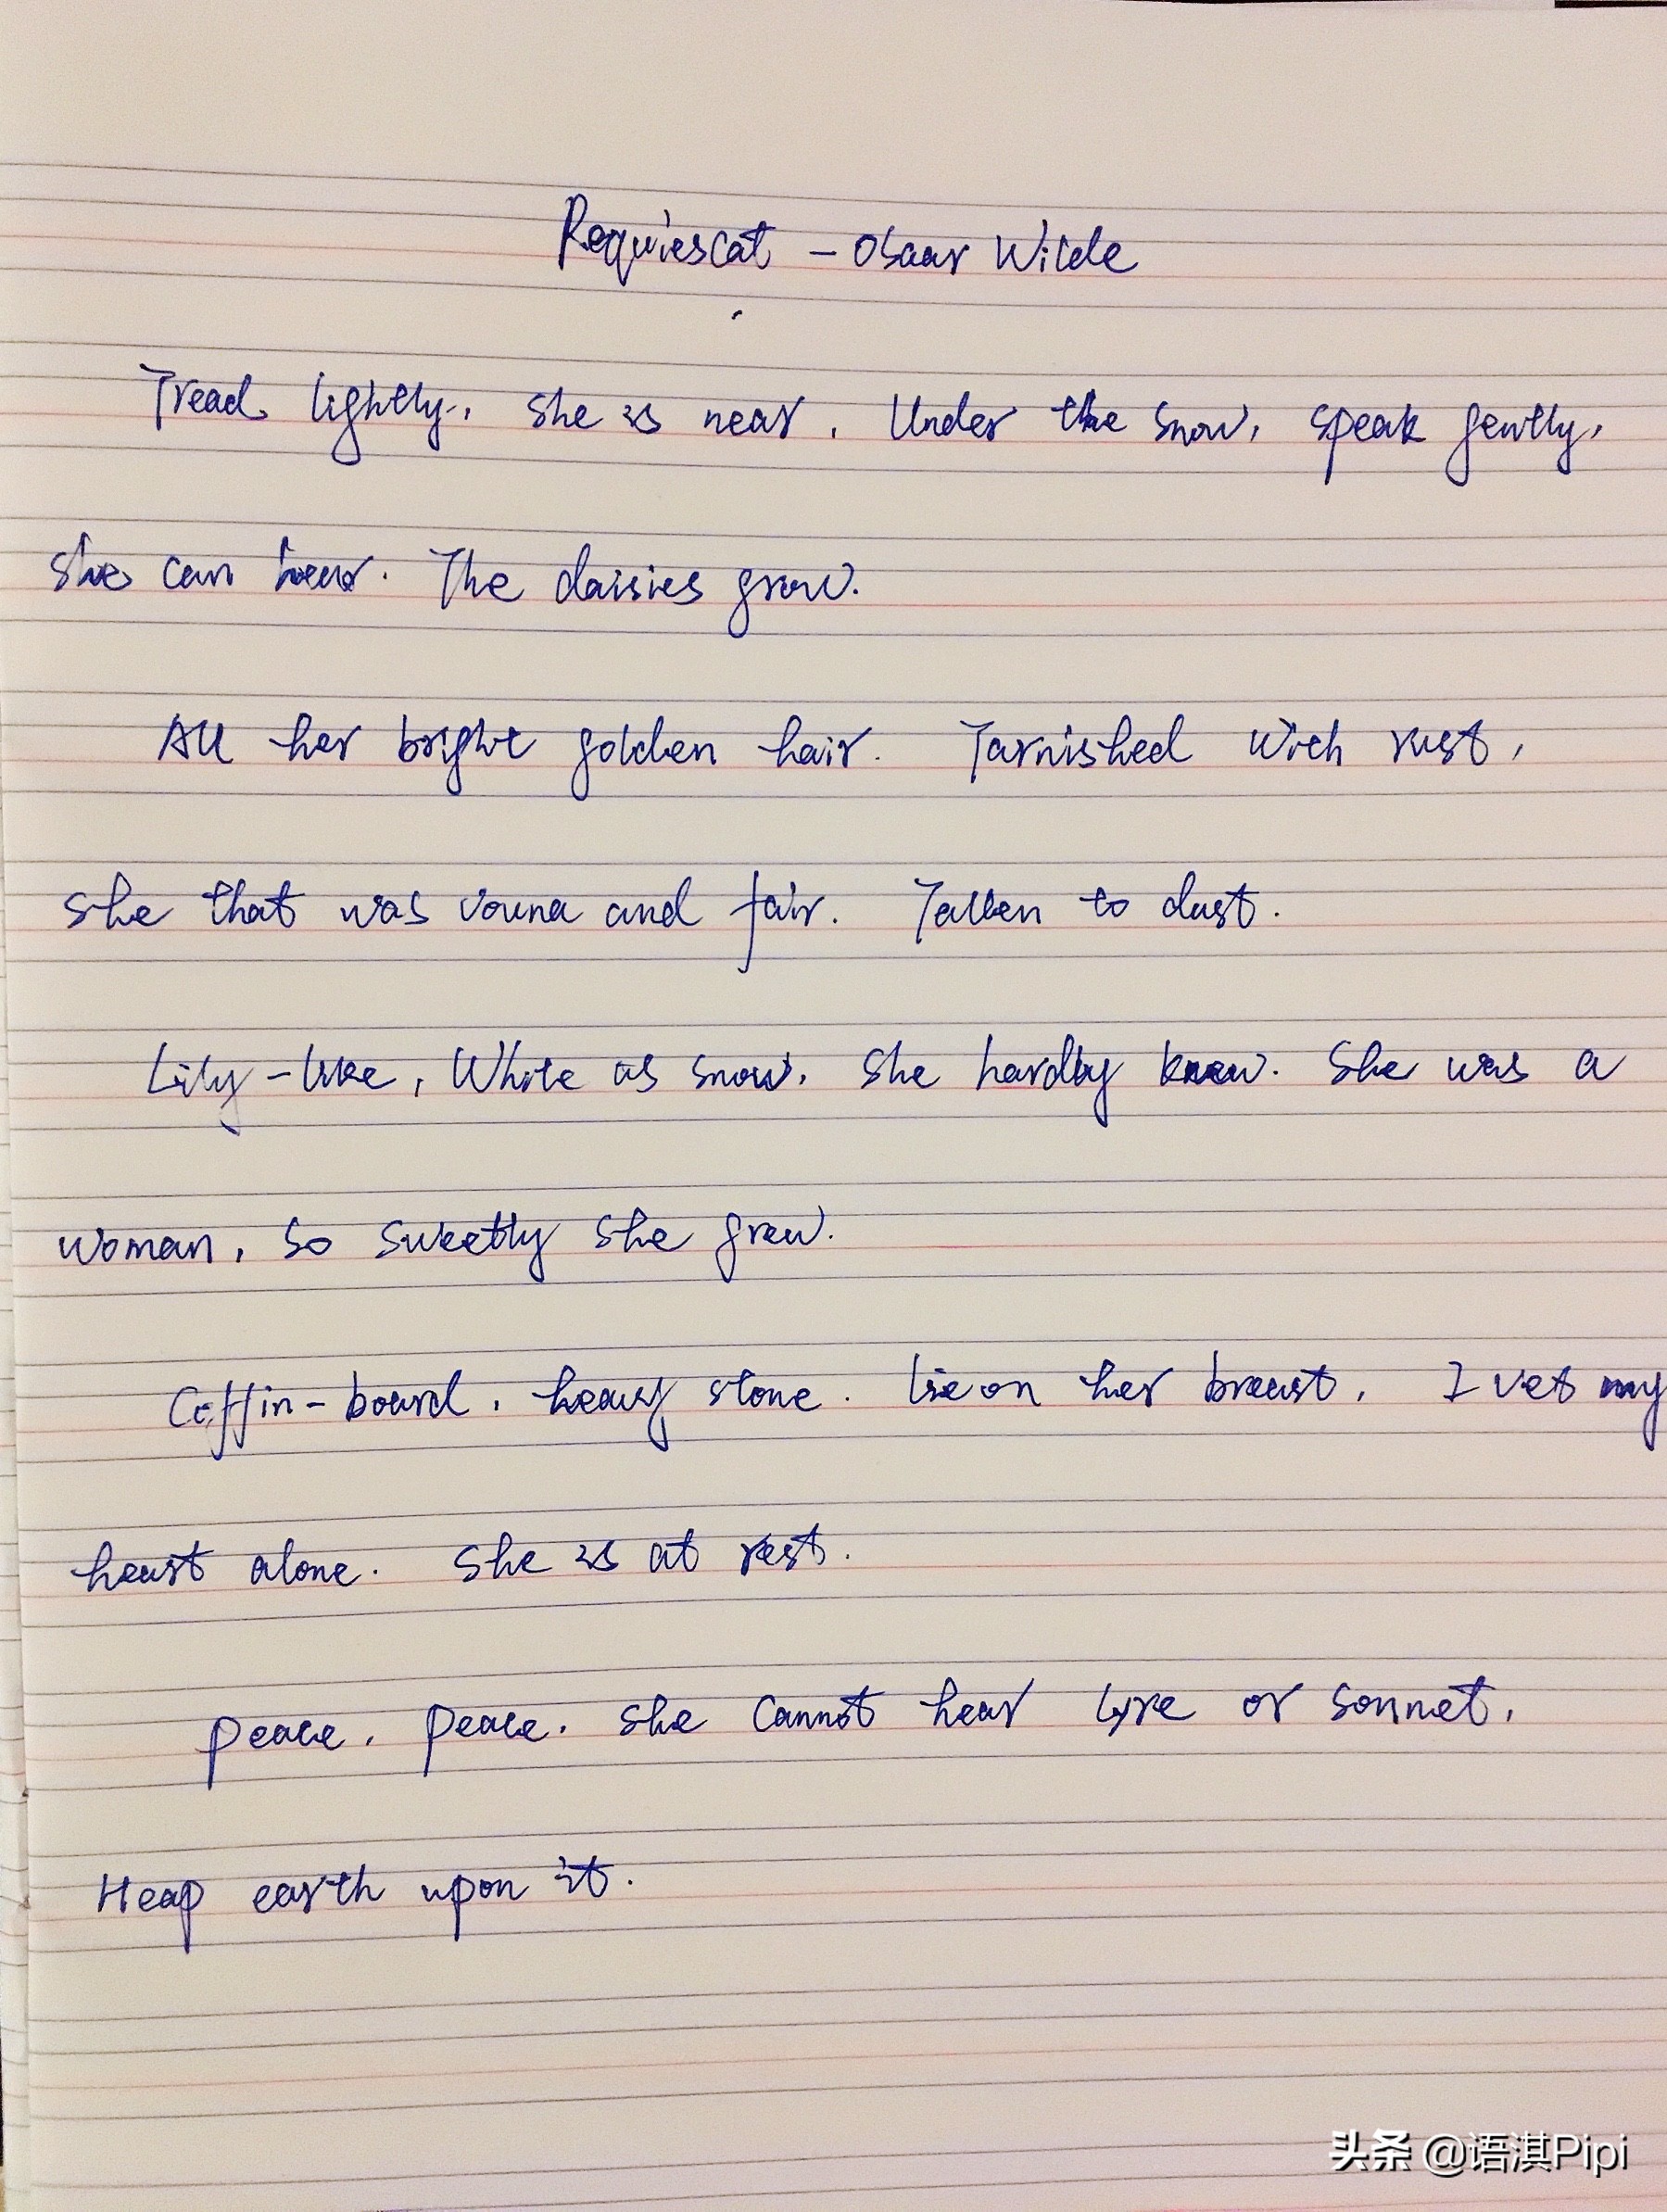 Requiescat - Oscar Wilde
Tread lightly, she is near, Under the snow, speak gently,
she can hear. The daisies grow.
All her bright golden hair. Tarnished with rust,
she that was vouna and fair. Fallen to dust.
Lily-like, White as snow, She hardly knew. She was a
woman, so sweetly she grew.
Coffin-board, heavy stone. lie on her breast, I vet my
heart alone. She is at rest.
peace, peace, she cannot hear lyre or sonnet,
Heap earth upon it.
头条 @语淇Pipi